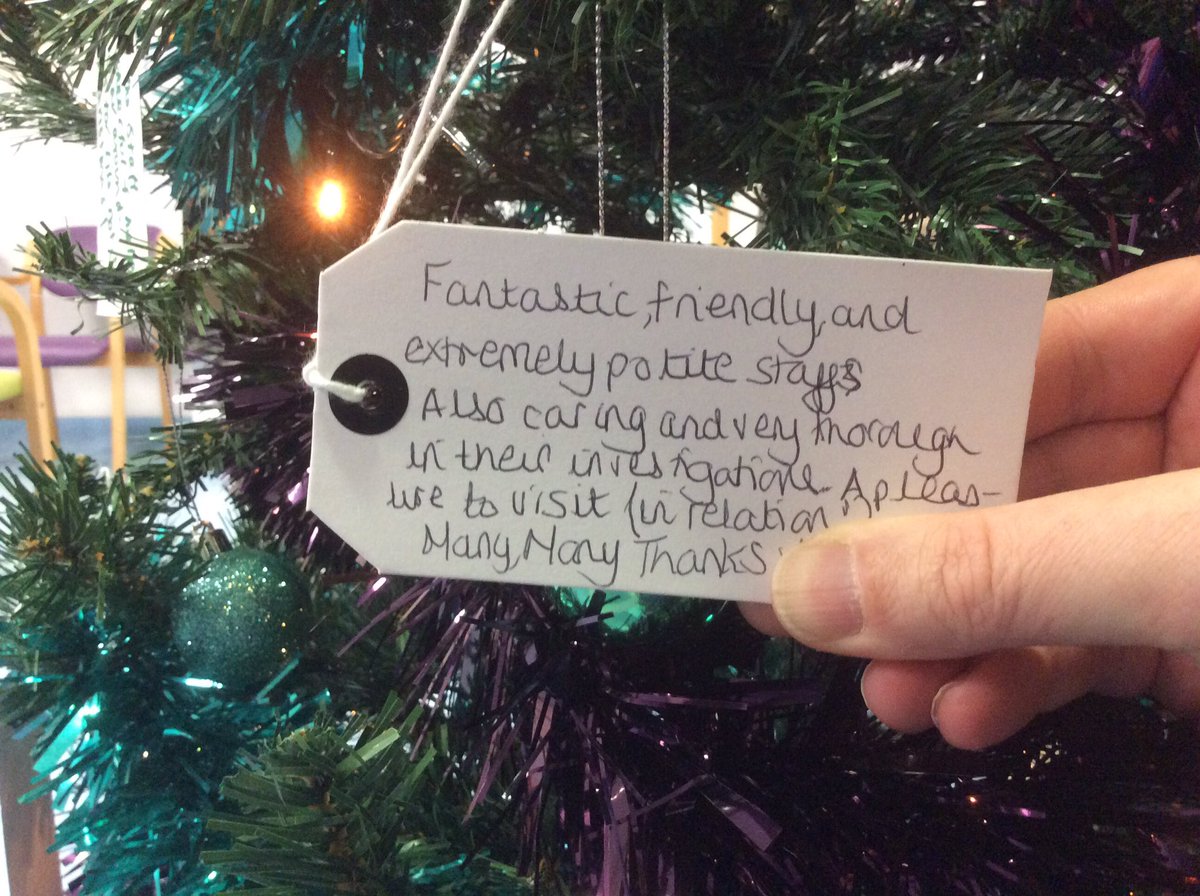 Fantastic, friendly, and
extremely polite staffs
Also caring and very thorough
in their investigations. A pleas-
ure to visit (in relation
Many, Many Thanks